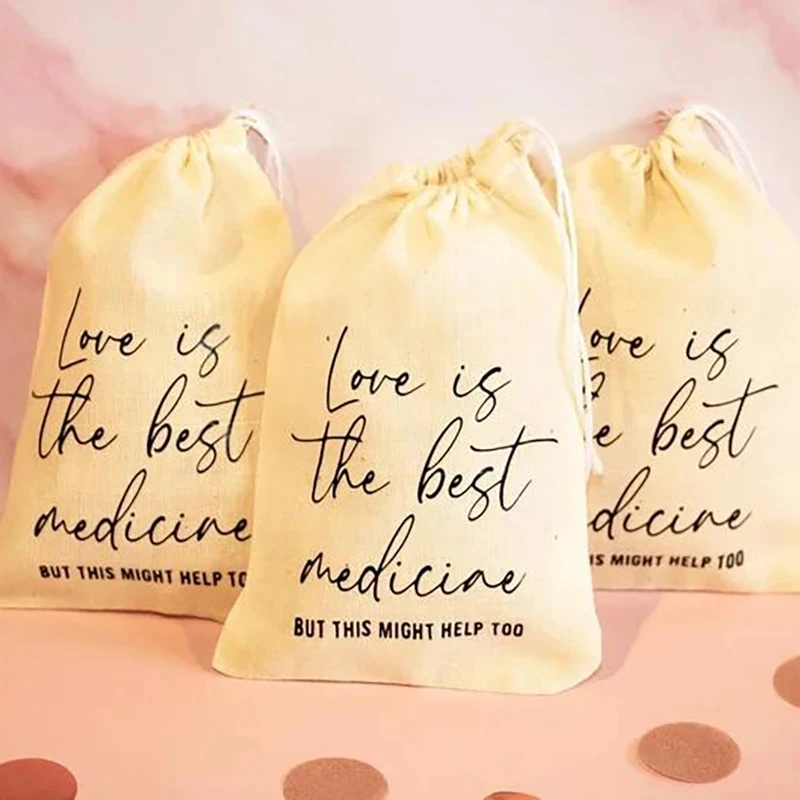 Love is
the best
medicine
BUT THIS MIGHT HELP TO
Love is
the best
medicine
BUT THIS MIGHT HELP TOO
Love is
e best
dicine
IS MIGHT HELP TOO